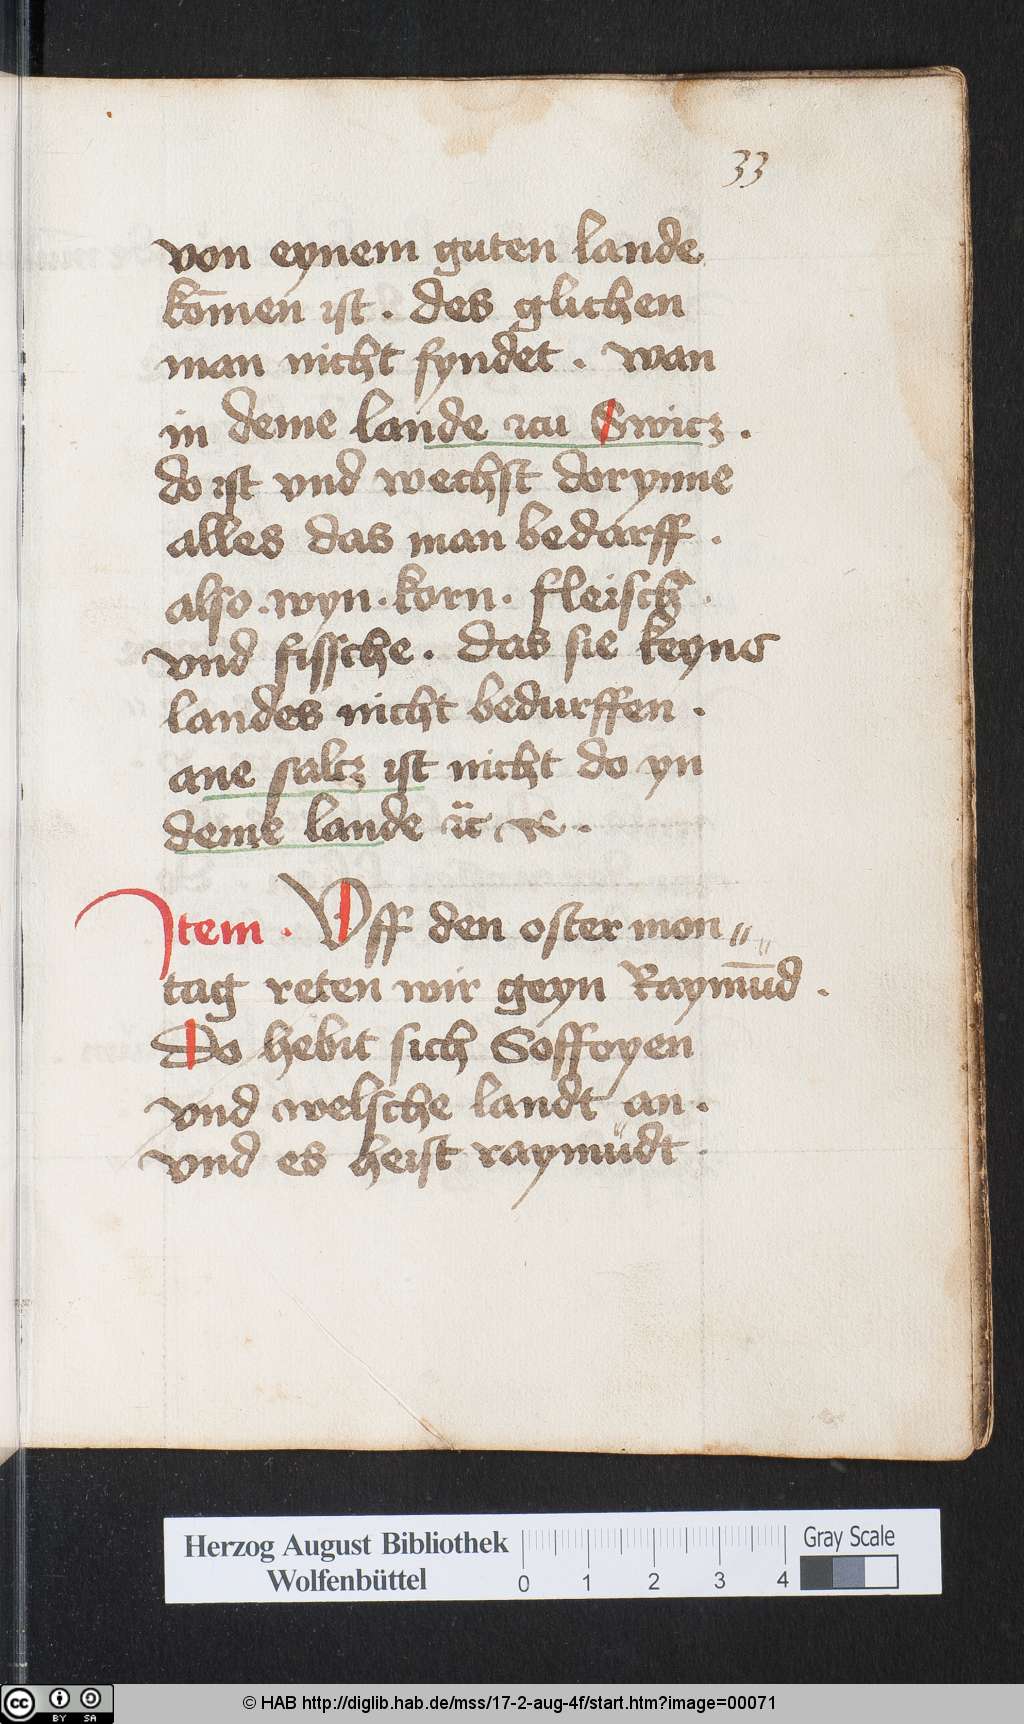 33
von eynem guten lande
kōmen ist . des glichen
man nicht fyndet . wan
in deme lande zcu Swicz .
do ist vnd wechst dorynne
alles das man bedarff .
also . wyn . korn . fleisch .
vnd fissche . das sie keyns
landes nicht bedurffen .
ane salcz ist nicht do yn
deme lande
Item . Vff den oster mon〃
tag reten wir geyn Raymūd .
Do hebit sich Soffoyen
vnd welsche landt an .
vnd es heist raymüdt .
Herzog August Bibliothek
Wolfenbüttel
0 1 2 3 4
Gray Scale
cc BY SA
© HAB http://diglib.hab.de/mss/17-2-aug-4f/start.htm?image=00071